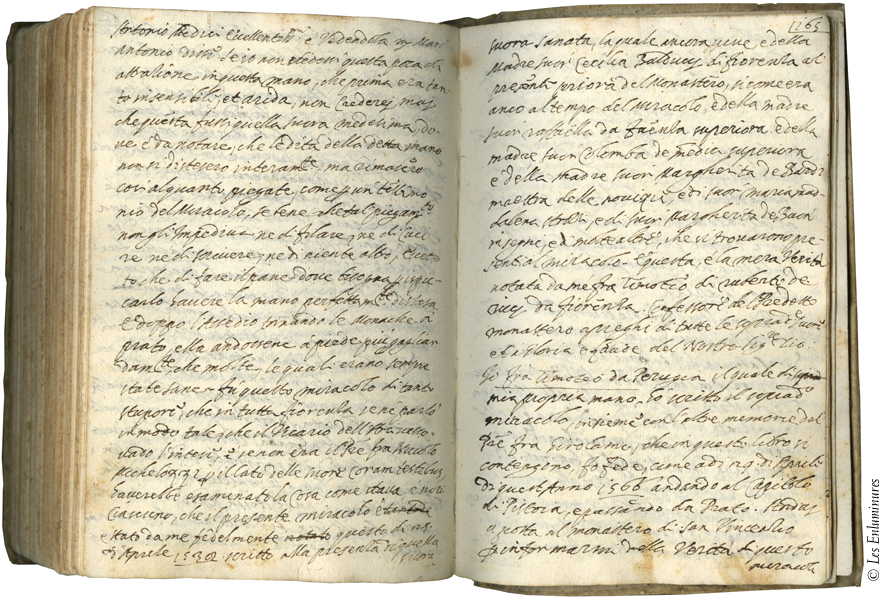 Antonio Medici Eccellentiss.
Antonio disse se io non vedessi questa
in questa mano, che prima era tan
to insensibile, et arida, non crederei mai
che questa fussi quella suora medesima, do
ve è da notare, che le dita della detta mano
non si distesero interamte, ma rimasero
così alquanto piegate, come p un testimo
nio del Miracolo, se bene
non gli Impediva ne di filare, ne di Cuci
re ne di scrivere, ne di niente altro, Eccet
to che di fare il pane, dove bisogna
havere la mano perfettamte distesa
E doppo l'Assedio tornando le Monache a
prato, ella andossene a piede più gagliar
damte, che molte, le quali erano sempre
state sane. fu questo miracolo di tanto
stupore, che in tutta fiorenza se ne parlò
in modo tale, che il Vicario dell'
e se non era il Pre fra Niccolo
Michelozzi,
haverebbe esaminato la Cosa come stava, e noti
Ciascuno, che il presente miracolo
è stato da me fedelmente notato questo dì
d'Aprile 1532 scritto alla presenza di quella
suora
1265
suora sanata, la quale ancora vive, e della
Madre suor Cecilia Balducci di fiorenza al
presente priora del Monastero, sì come era
anco al tempo del Miracolo, e della madre
suor raffaella da faenza superiora, e della
madre suor Colomba de medici superiora
e della madre suor Margherita de Bardi
maestra delle novizie, e di suor Maria mad
dalena, e di suor Margherita de Buon
insegni, e di molte altre, che si trovarono pre
senti al miracolo. E questa, è la mera Verità
notata da me fra Timoteo di ruberto de
ricci da fiorenza. Confessore del Predetto
monastero a preghi di tutte le suore
et a gloria e laude del Nostro Sigre Dio.
Io fra Timoteo da Perugia il quale di
mia propria mano ho scritto il
miracolo, insieme con l'altre memorie del
Pre fra Girolamo, che in questo libro si
contengono, fo fede, come a dì 19 di Aprile
di quest'Anno 1566 andando al Capitolo
di Pistoia, e passando da Prato.
a posta al monastero di San Vincenzio
p informarmi della Verità di questo
miracolo
© Les Enluminures